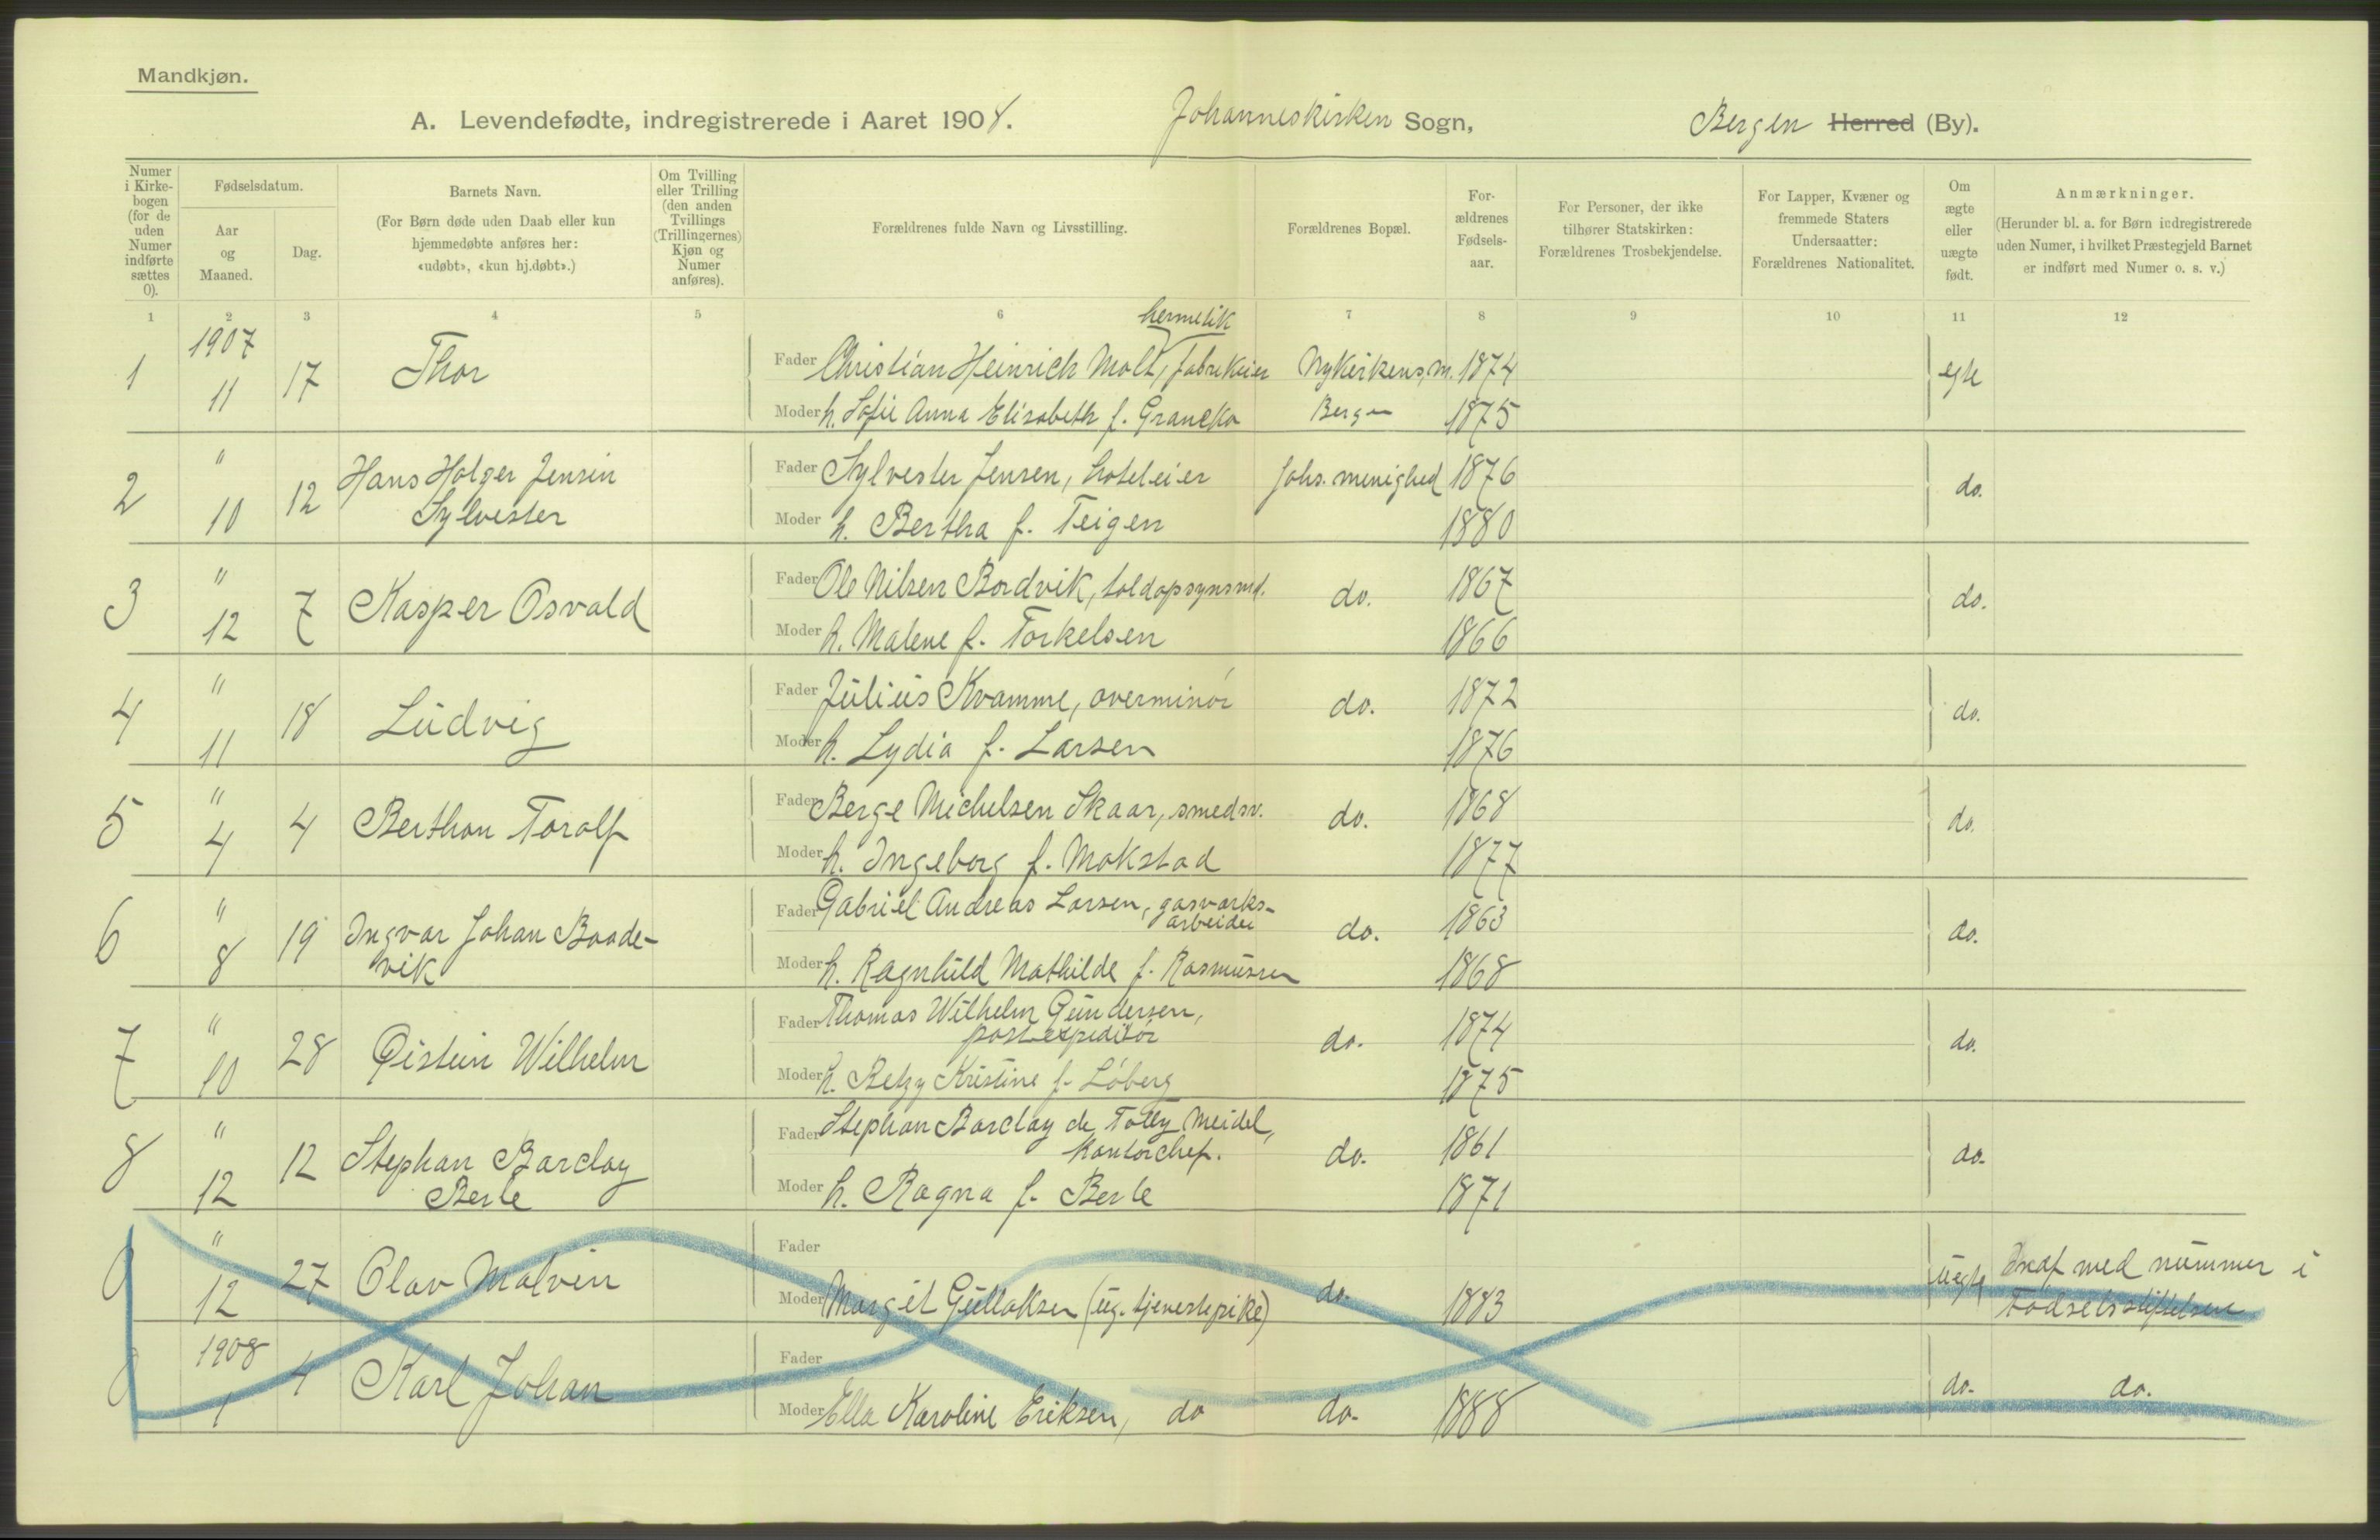 Mandkjøn.
A. Levendefødte, indregistrerede i Aaret 1908. Johanneskirken Sogn, Bergen Herred (By).
Numer i Kirkebogen (for de uden Numer indførte sættes 0).
Fødselsdatum.
Aar og Maaned.
Dag.
Barnets Navn.
(For Børn døde uden Daab eller kun hjemmedøbte anføres her: «udøbt», «kun hj.døbt».)
Om Tvilling eller Trilling (den anden Tvillings (Trillingernes) Kjøn og Numer anføres).
Forældrenes fulde Navn og Livsstilling.
Forældrenes Bopæl.
Forældrenes Fødselsaar.
For Personer, der ikke tilhører Statskirken: Forældrenes Trosbekjendelse.
For Lapper, Kvæner og fremmede Staters Undersaatter: Forældrenes Nationalitet.
Om ægte eller uægte født.
Anmærkninger.
(Herunder bl. a. for Børn indregistrerede uden Numer, i hvilket Præstegjeld Barnet er indført med Numer o. s. v.)
1 2 3 4 5 6 7 8 9 10 11 12
1 1907 11 17 Thor Fader Christian Heinrich Molt, hermetikfabrikeier Nykirkens m. 1874 egte
Moder h. Sofie Anna Elisabeth f. Grancko Bergen 1875
2 " 10 12 Hans Holger Jensin Sylvester Fader Sylvester Jensen, hoteleier Johs. menighed 1876 do.
Moder h. Bertha f. Teigen 1880
3 " 12 7 Kasper Osvald Fader Ole Nilsen Bordvik, toldopsynsmd. do. 1867 do.
Moder h. Malene f. Torkelsen 1866
4 " 11 18 Ludvig Fader Julius Kvamme, overminør do. 1872 do.
Moder h. Lydia f. Larsen 1876
5 " 4 4 Berthon Toralf Fader Berge Michelsen Skaar, smedsv. do. 1868 do.
Moder h. Ingeborg f. Mokstad 1877
6 " 8 19 Ingvar Johan Baadevik Fader Gabriel Andreas Larsen, gasværksarbeider do. 1863 do.
Moder h. Ragnhild Mathilde f. Rasmussen 1868
7 " 10 28 Øistein Wilhelm Fader Thomas Wilhelm Gundersen, postexpeditør do. 1874 do.
Moder h. Betzy Kristine f. Løberg 1875
8 " 12 12 Stephan Barclay Berle Fader Stephan Barclay de Tolly Meidel, kontorchef. do. 1861 do.
Moder h. Ragna f. Berle 1871
0 " 12 27 Olav Malvin Fader
Moder Margit Gullaksen (ug. tjenestepike) do. 1883 uegte Indf med nummer i Fødselsstiftelsen
0 1908 1 4 Karl Johan Fader
Moder Ella Karoline Eriksen, do do. 1888 do. do.